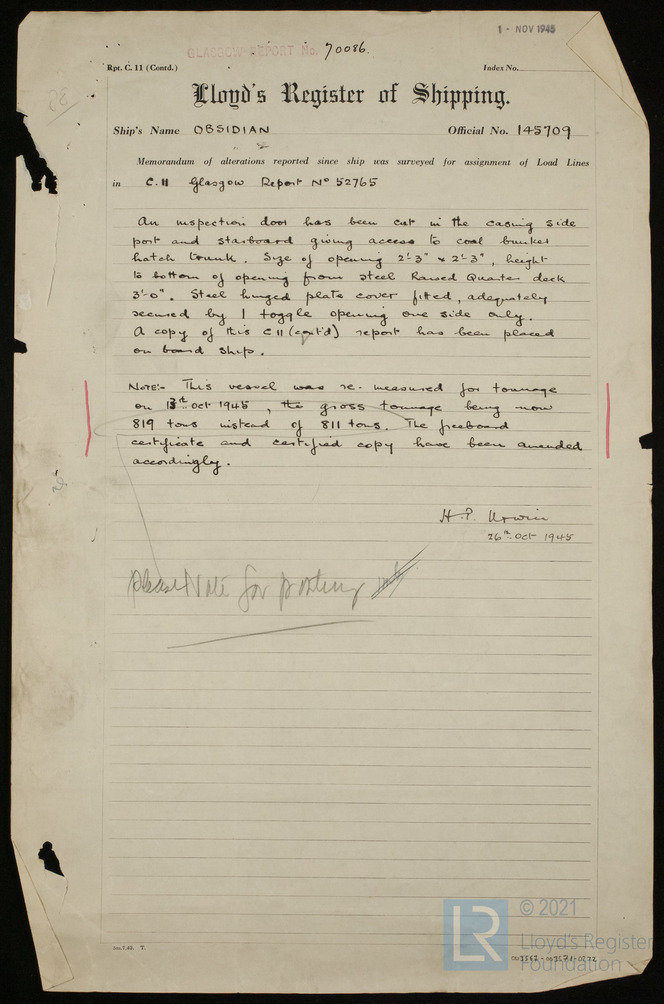 1 - NOV 1945
GLASGOW REPORT No. 70086.
Rpt. C. 11 (Contd.) Index No.
Lloyd's Register of Shipping.
Ship's Name OBSIDIAN Official No. 145709
Memorandum of alterations reported since ship was surveyed for assignment of Load Lines
in C.11 Glasgow Report No 52765
An inspection door has been cut in the casing side
port and starboard giving access to coal bunker
hatch trunk. Size of opening 2'-3" x 2'-3", height
to bottom of opening from steel Raised Quarter deck
3'-0". Steel hinged plate cover fitted, adequately
secured by 1 toggle opening one side only.
A copy of this C 11 (cont'd) report has been placed
on board ship.
NOTE:- This vessel was re-measured for tonnage
on 13th Oct 1945, the gross tonnage being now
819 tons instead of 811 tons. The freeboard
certificate and certified copy have been amended
accordingly.
H.P. Urwin
26th Oct 1945
Please Note for posting
© 2021
LR
Lloyd's Register
Foundation
003562-003571-0272